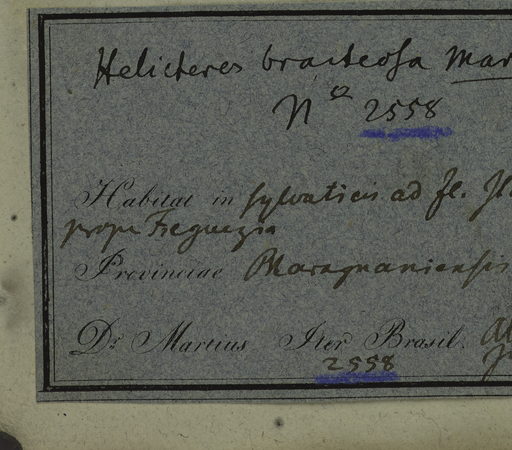 Helicteres bracteosa Mar
No 2558
Habitat in sylvaticis ad fl.
prope Freguezia
Provinciae Maragnaniensis
Dr. Martius Iter Brasil.
2558